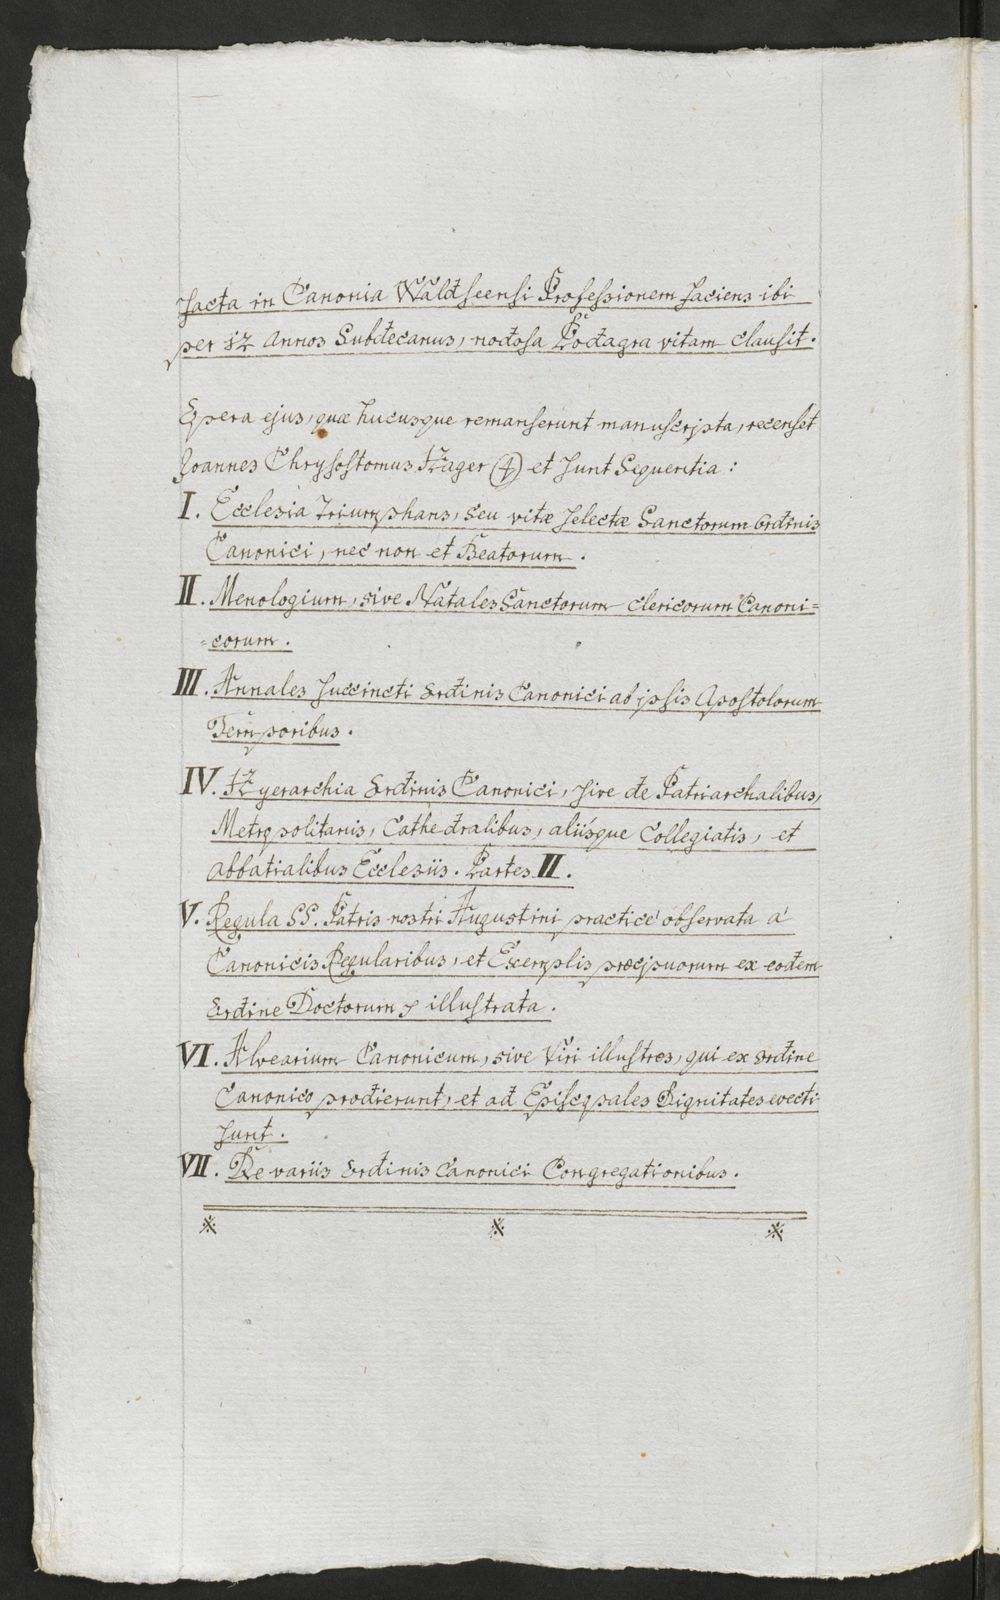 Facta in Canonia Waldseensi Professionem faciens ibi
per 12 Annos Subdecanus, nodosa Podagra vitam clausit.
Opera ejus, quæ hucusque remanserunt manuscripta, recenset
Joannes Chrysostomus Hager (4) et sunt Sequentia:
I. Ecclesia Triumphans, seu vitæ selectæ Sanctorum Ordinis
Canonici, nec non et Beatorum.
II. Menologium, sive Natales Sanctorum clericorum Canoni=
=corum.
III. Annales succincti Ordinis Canonici ab ipsis Apostolorum
Temporibus.
IV. Hyerarchia Ordinis Canonici, sive de Patriarchalibus,
Metropolitanis, Cathedralibus, aliisque Collegiatis, et
abbatialibus Ecclesiis. Partes II.
V. Regula SS. Patris nostri Augustini practicè observata à
Canonicis Regularibus, et Exemplis præcipuorum ex eodem
Ordine Doctorum illustrata.
VI. Alvearium Canonicum, sive Viri illustres, qui ex Ordine
Canonico prodierunt, et ad Episcopales Dignitates evecti
sunt.
VII. De variis Ordinis Canonici Congregationibus.